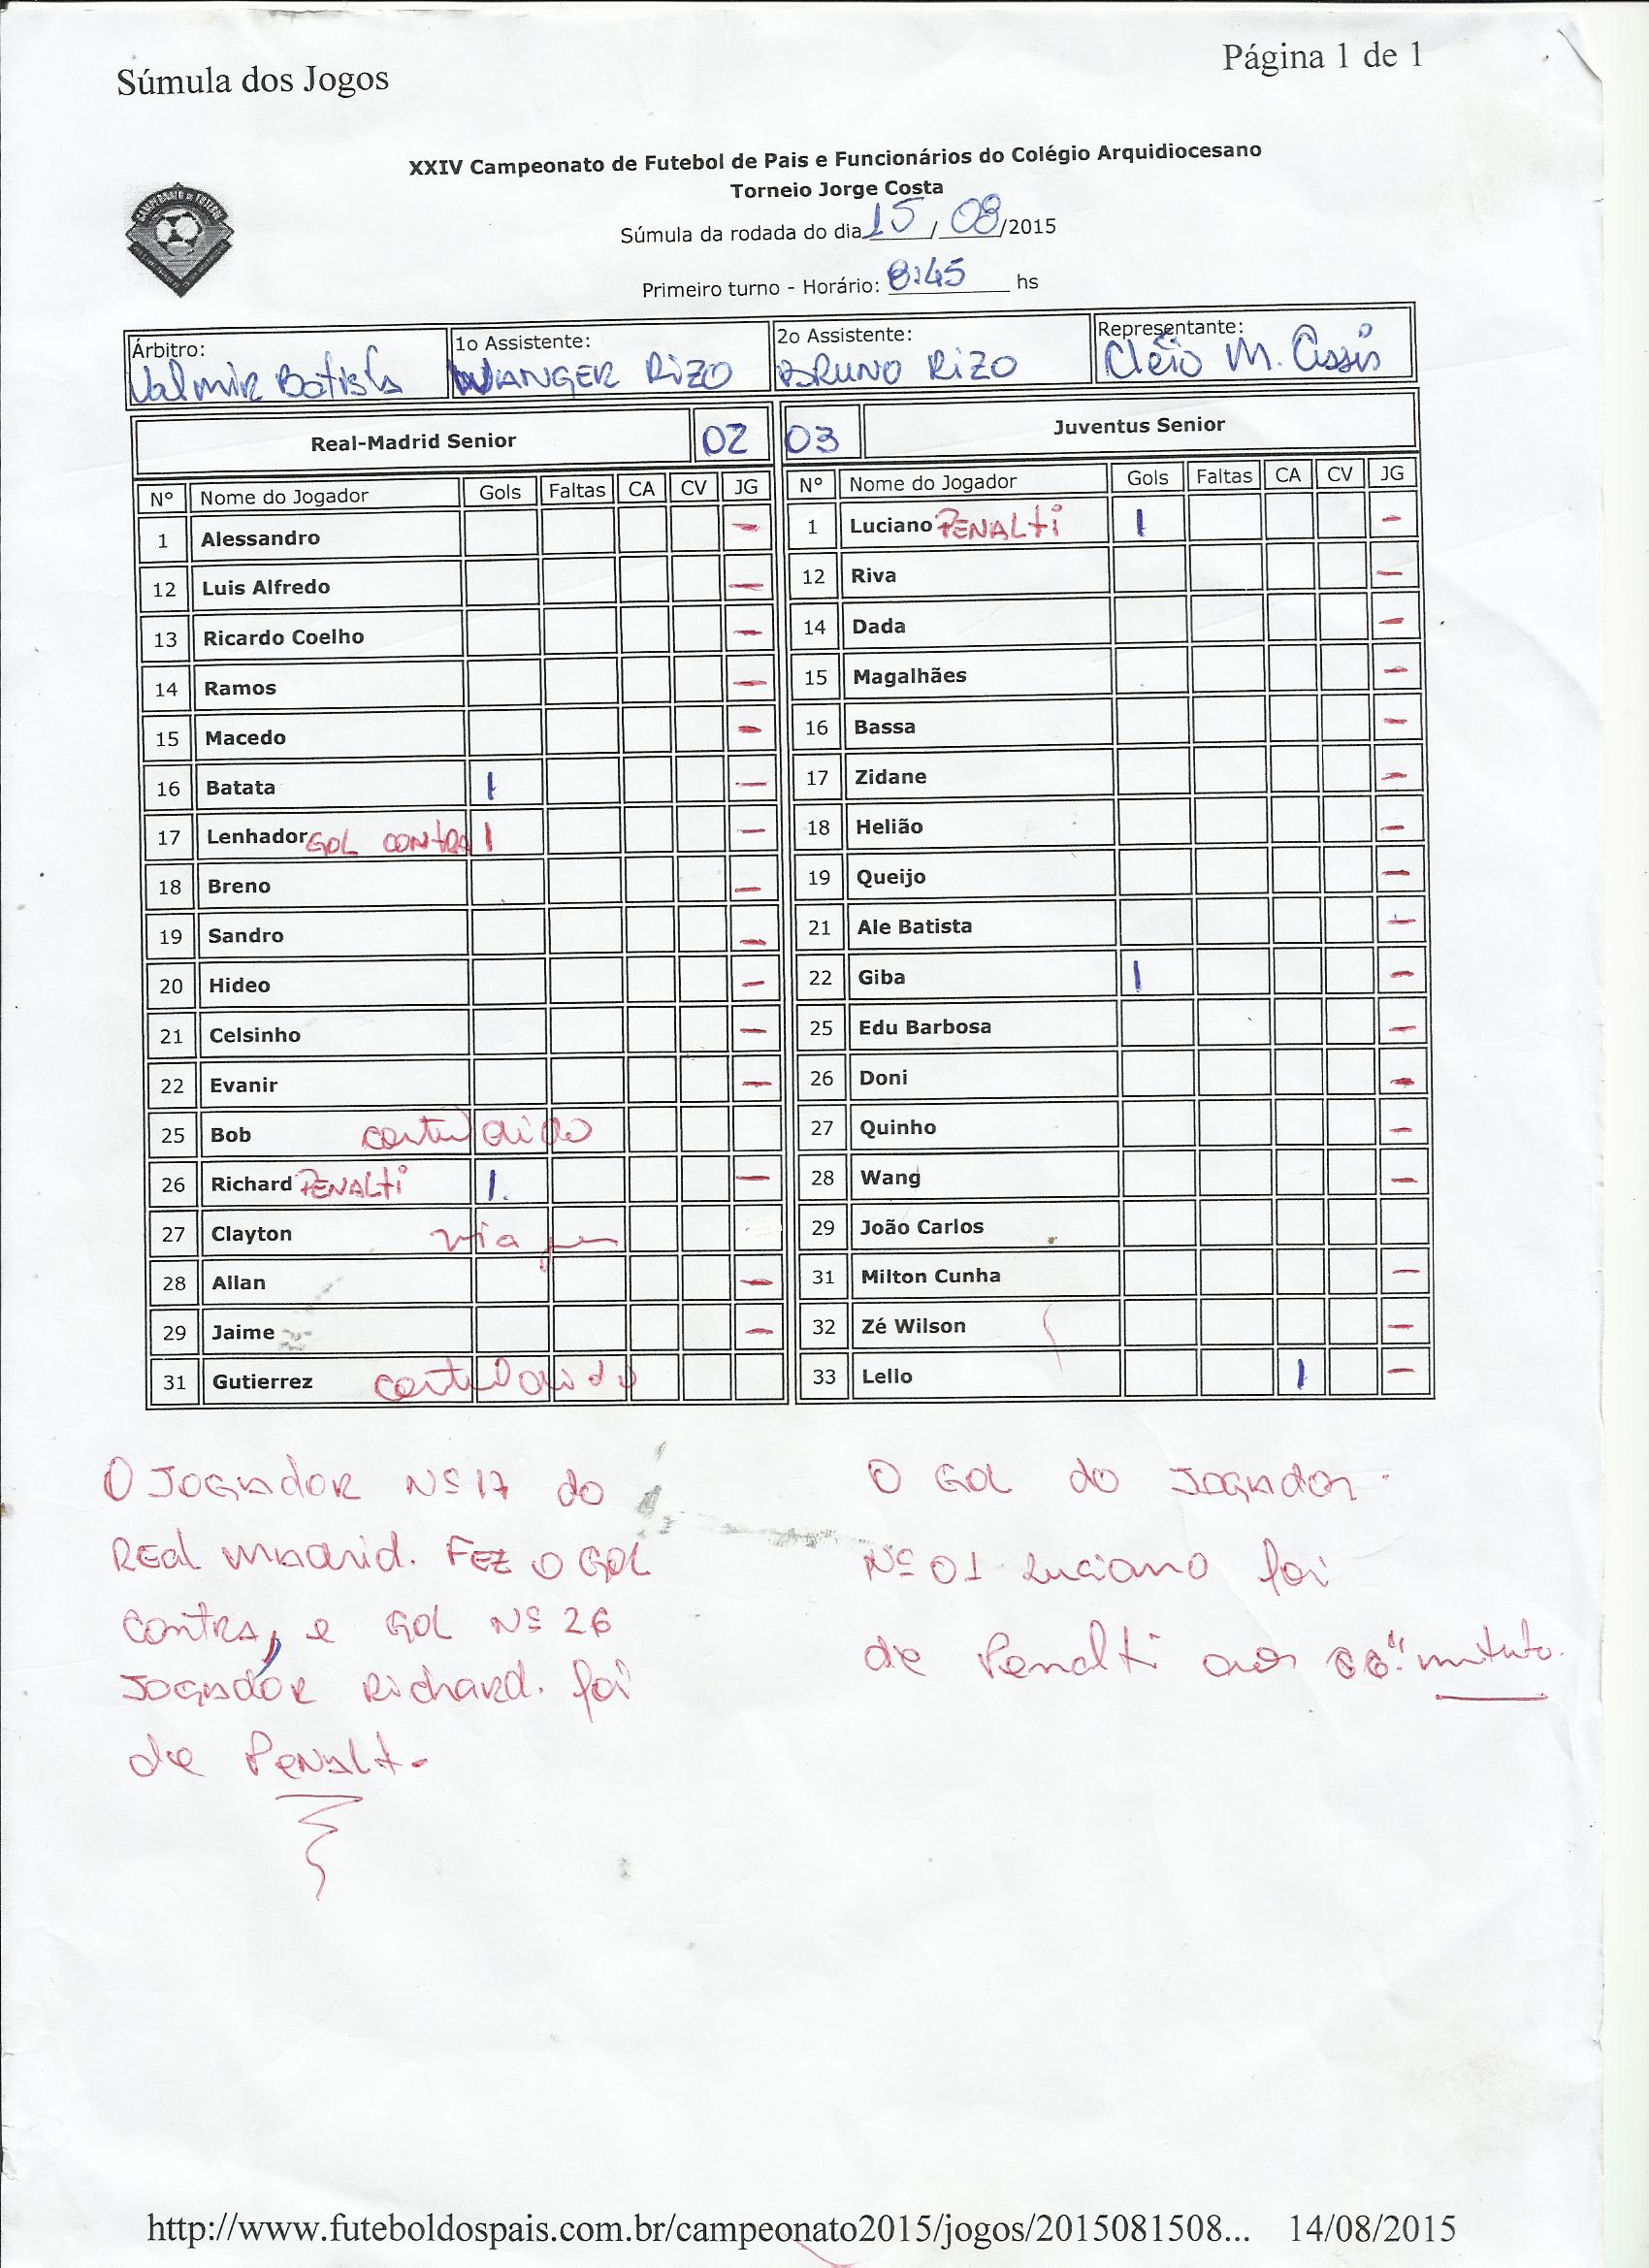 Súmula dos Jogos Página 1 de 1
XXIV Campeonato de Futebol de Pais e Funcionários do Colégio Arquidiocesano
Torneio Jorge Costa
Súmula da rodada do dia 15 / 08 /2015
Primeiro turno - Horário: 8:45 hs
Árbitro: 1o Assistente: 2o Assistente: Representante:
Valmir Batista WANGER RIZO BRUNO RIZO Cléio M. Assis
Real-Madrid Senior 02 03 Juventus Senior
Nº Nome do Jogador Gols Faltas CA CV JG Nº Nome do Jogador Gols Faltas CA CV JG
1 Alessandro — 1 Luciano PENALTI 1 —
12 Luis Alfredo — 12 Riva —
13 Ricardo Coelho — 14 Dada —
14 Ramos — 15 Magalhães —
15 Macedo — 16 Bassa —
16 Batata 1 — 17 Zidane —
17 Lenhador GOL CONTRA 1 — 18 Helião —
18 Breno — 19 Queijo —
19 Sandro — 21 Ale Batista —
20 Hideo — 22 Giba 1 —
21 Celsinho — 25 Edu Barbosa —
22 Evanir — 26 Doni —
25 Bob 27 Quinho —
26 Richard PENALTI 1. — 28 Wang —
27 Clayton 29 João Carlos
28 Allan — 31 Milton Cunha —
29 Jaime — 32 Zé Wilson —
31 Gutierrez 33 Lello 1 —
O JOGADOR Nº 17 do
REAL MADRID. FEZ O GOL
CONTRA, e GOL Nº 26
JOGADOR RICHARD. foi
de PENALT.
O GOL do JOGADOR
Nº 01 Luciano foi
de Penalti aos
http://www.futeboldospais.com.br/campeonato2015/jogos/2015081508... 14/08/2015